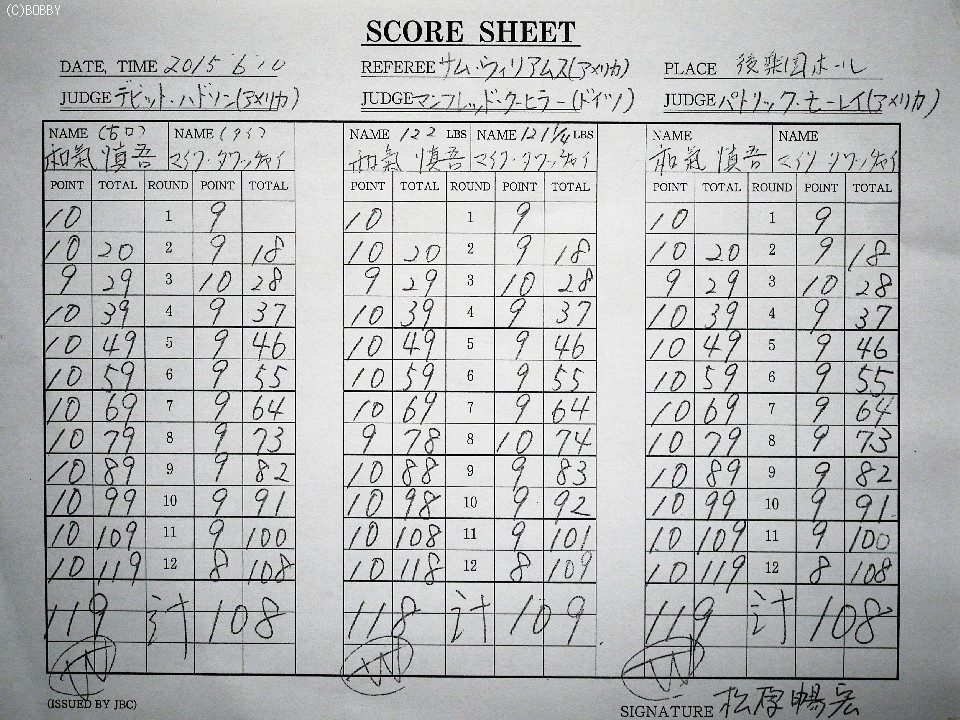 (C)BOBBY
SCORE SHEET
DATE, TIME 2015 6.10 REFEREE サム・ウィリアムス(アメリカ) PLACE 後楽園ホール
JUDGE デビット・ハドソン(アメリカ) JUDGE マンフレッド・クーヒラー(ドイツ) JUDGE パトリック・モーレイ(アメリカ)
NAME (古口) NAME (タイ) NAME 122 LBS NAME 121 1/4 LBS NAME NAME
和氣 慎吾 マイク・タワッチャイ 和氣 慎吾 マイク・タワッチャイ 和氣 慎吾 マイク タワッチャイ
POINT TOTAL ROUND POINT TOTAL POINT TOTAL ROUND POINT TOTAL POINT TOTAL ROUND POINT TOTAL
10 1 9 10 1 9 10 1 9
10 20 2 9 18 10 20 2 9 18 10 20 2 9 18
9 29 3 10 28 9 29 3 10 28 9 29 3 10 28
10 39 4 9 37 10 39 4 9 37 10 39 4 9 37
10 49 5 9 46 10 49 5 9 46 10 49 5 9 46
10 59 6 9 55 10 59 6 9 55 10 59 6 9 55
10 69 7 9 64 10 69 7 9 64 10 69 7 9 64
10 79 8 9 73 9 78 8 10 74 10 79 8 9 73
10 89 9 9 82 10 88 9 9 83 10 89 9 9 82
10 99 10 9 91 10 98 10 9 92 10 99 10 9 91
10 109 11 9 100 10 108 11 9 101 10 109 11 9 100
10 119 12 8 108 10 118 12 8 109 10 119 12 8 108
119 計 108 118 計 109 119 計 108
W W W
(ISSUED BY JBC) SIGNATURE 松原 暢宏